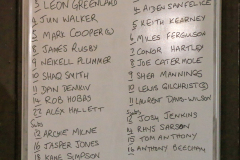 3 LEON GREENLAND
JUN WALKER
5 MARK COOPER
JAMES RUSBY
9 NEIKELL PLUMMER
10 SHAQ SMITH
DAN DENKIV
14 ROB HOBBS
22 ALEX HALLETT
Subs
ARCHIE MILNE
JASPER JAMES
18 KANE SIMPSON
AIDEN SANFELICE
5 KEITH KEARNEY
MILES FERGUSON
7 CONOR HARTLEY
8 JOE CATERMOLE
9 SHEA MANNINGS
10 LEWIS GILCHRIST
11 LAURENT
Subs
12 JOSH JENKINS
14 RHYS SARSON
15 TOM ANTHONY
16 ANTHONY BEECHAM